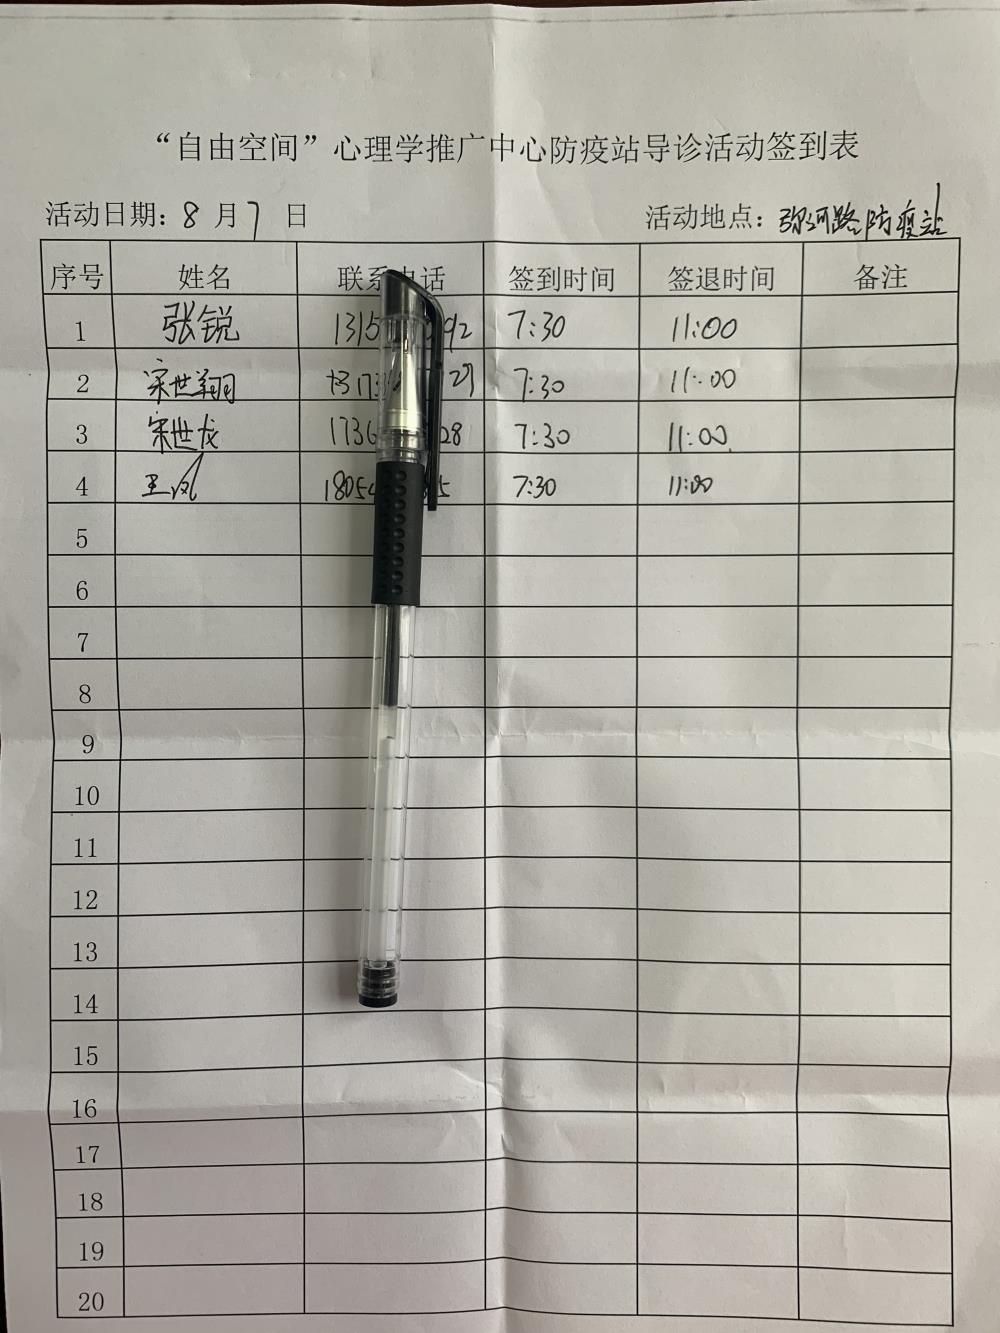 “自由空间”心理学推广中心防疫站导诊活动签到表
活动日期：8月7日 活动地点：弥河路防疫站
序号 姓名 联系电话 签到时间 签退时间 备注
1 张锐 1315 92 7:30 11:00
2 宋世翔 173 27 7:30 11:00
3 宋世龙 1736 28 7:30 11:00
4 王凤 1805 5 7:30 11:00
5
6
7
8
9
10
11
12
13
14
15
16
17
18
19
20